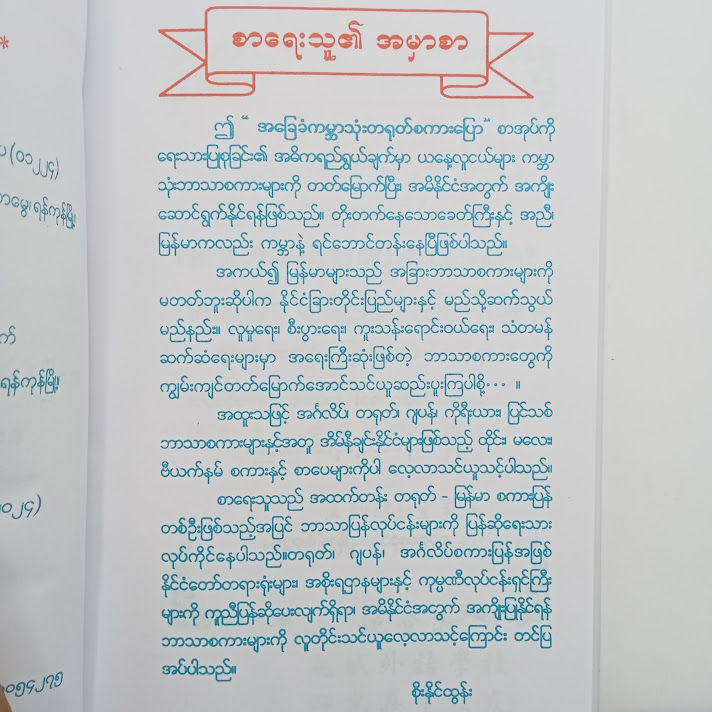 စာရေးသူ၏ အမှာစာ
ဤ “ အခြေခံကမ္ဘာသုံးတရုတ်စကားပြော” စာအုပ်ကို
ရေးသားပြုစုခြင်း၏ အဓိကရည်ရွယ်ချက်မှာ ယနေ့လူငယ်များ ကမ္ဘာ
သုံးဘာသာစကားများကို တတ်မြောက်ပြီး၊ အမိနိုင်ငံအတွက် အကျိုး
ဆောင်ရွက်နိုင်ရန်ဖြစ်သည်။ တိုးတက်နေသောခေတ်ကြီးနှင့် အညီ၊
မြန်မာကလည်း ကမ္ဘာနဲ့ ရင်ဘောင်တန်းနေပြီဖြစ်ပါသည်။
အကယ်၍ မြန်မာများသည် အခြားဘာသာစကားများကို
မတတ်ဘူးဆိုပါက နိုင်ငံခြားတိုင်းပြည်များနှင့် မည်သို့ဆက်သွယ်
မည်နည်း။ လူမှုရေး၊ စီးပွားရေး၊ ကူးသန်းရောင်းဝယ်ရေး၊ သံတမန်
ဆက်ဆံရေးများမှာ အရေးကြီးဆုံးဖြစ်တဲ့ ဘာသာစကားတွေကို
ကျွမ်းကျင်တတ်မြောက်အောင်သင်ယူဆည်းပူးကြပါစို့... ။
အထူးသဖြင့် အင်္ဂလိပ်၊ တရုတ်၊ ဂျပန်၊ ကိုရီးယား၊ ပြင်သစ်
ဘာသာစကားများနှင့်အတူ အိမ်နီချင်းနိုင်ငံများဖြစ်သည့် ထိုင်း၊ မလေး၊
ဗီယက်နမ် စကားနှင့် စာပေများကိုပါ လေ့လာသင်ယူသင့်ပါသည်။
စာရေးသူသည် အထက်တန်း တရုတ် - မြန်မာ စကားပြန်
တစ်ဦးဖြစ်သည့်အပြင် ဘာသာပြန်လုပ်ငန်းများကို ပြန်ဆိုရေးသား
လုပ်ကိုင်နေပါသည်။တရုတ်၊ ဂျပန်၊ အင်္ဂလိပ်စကားပြန်အဖြစ်
နိုင်ငံတော်တရားရုံးများ၊ အစိုးရဌာနများနှင့် ကုမ္ပဏီလုပ်ငန်းရှင်ကြီး
များကို ကူညီပြန်ဆိုပေးလျက်ရှိရာ၊ အမိနိုင်ငံအတွက် အကျိုးပြုနိုင်ရန်
ဘာသာစကားများကို လူတိုင်းသင်ယူလေ့လာသင့်ကြောင်း တင်ပြ
အပ်ပါသည်။
စိုးနိုင်ထွန်း
(၀၁၂၂၄)
ရန်ကုန်မြို့၊
ရန်ကုန်မြို့၊
၀၂၄)
၀၅၄၂၇၅